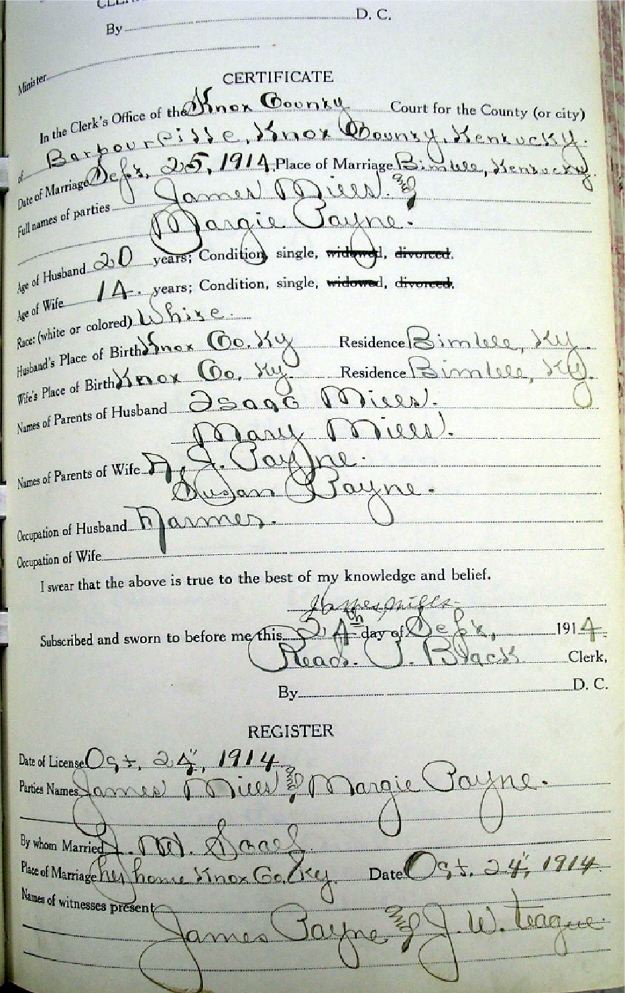 By D. C.
Minister
CERTIFICATE
In the Clerk's Office of the Knox County Court for the County (or city)
of Barbourville, Knox County, Kentucky.
Date of Marriage Sept, 25, 1914. Place of Marriage Bimble, Kentucky.
Full names of parties James Mills. and
Margie Payne.
Age of Husband 20 years; Condition, single, widowed, divorced.
Age of Wife 14. years; Condition, single, widowed, divorced.
Race: (white or colored) White.
Husband's Place of Birth Knox Co. Ky Residence Bimble, Ky.
Wife's Place of Birth Knox Co, Ky. Residence Bimble, Ky.
Names of Parents of Husband Isaac Mills.
Mary Mills.
Names of Parents of Wife J. Payne.
Susan Payne.
Occupation of Husband Farmer.
Occupation of Wife
I swear that the above is true to the best of my knowledge and belief.
James Mills
Subscribed and sworn to before me this 24th day of Sept, 1914.
Read. P. Black Clerk,
By D. C.
REGISTER
Date of License Oct. 24", 1914.
Parties Names James Mills and Margie Payne.
By whom Married M.
Place of Marriage his home Knox Co, Ky. Date Oct. 24", 1914
Names of witnesses present
James Payne and J. W. Teague.